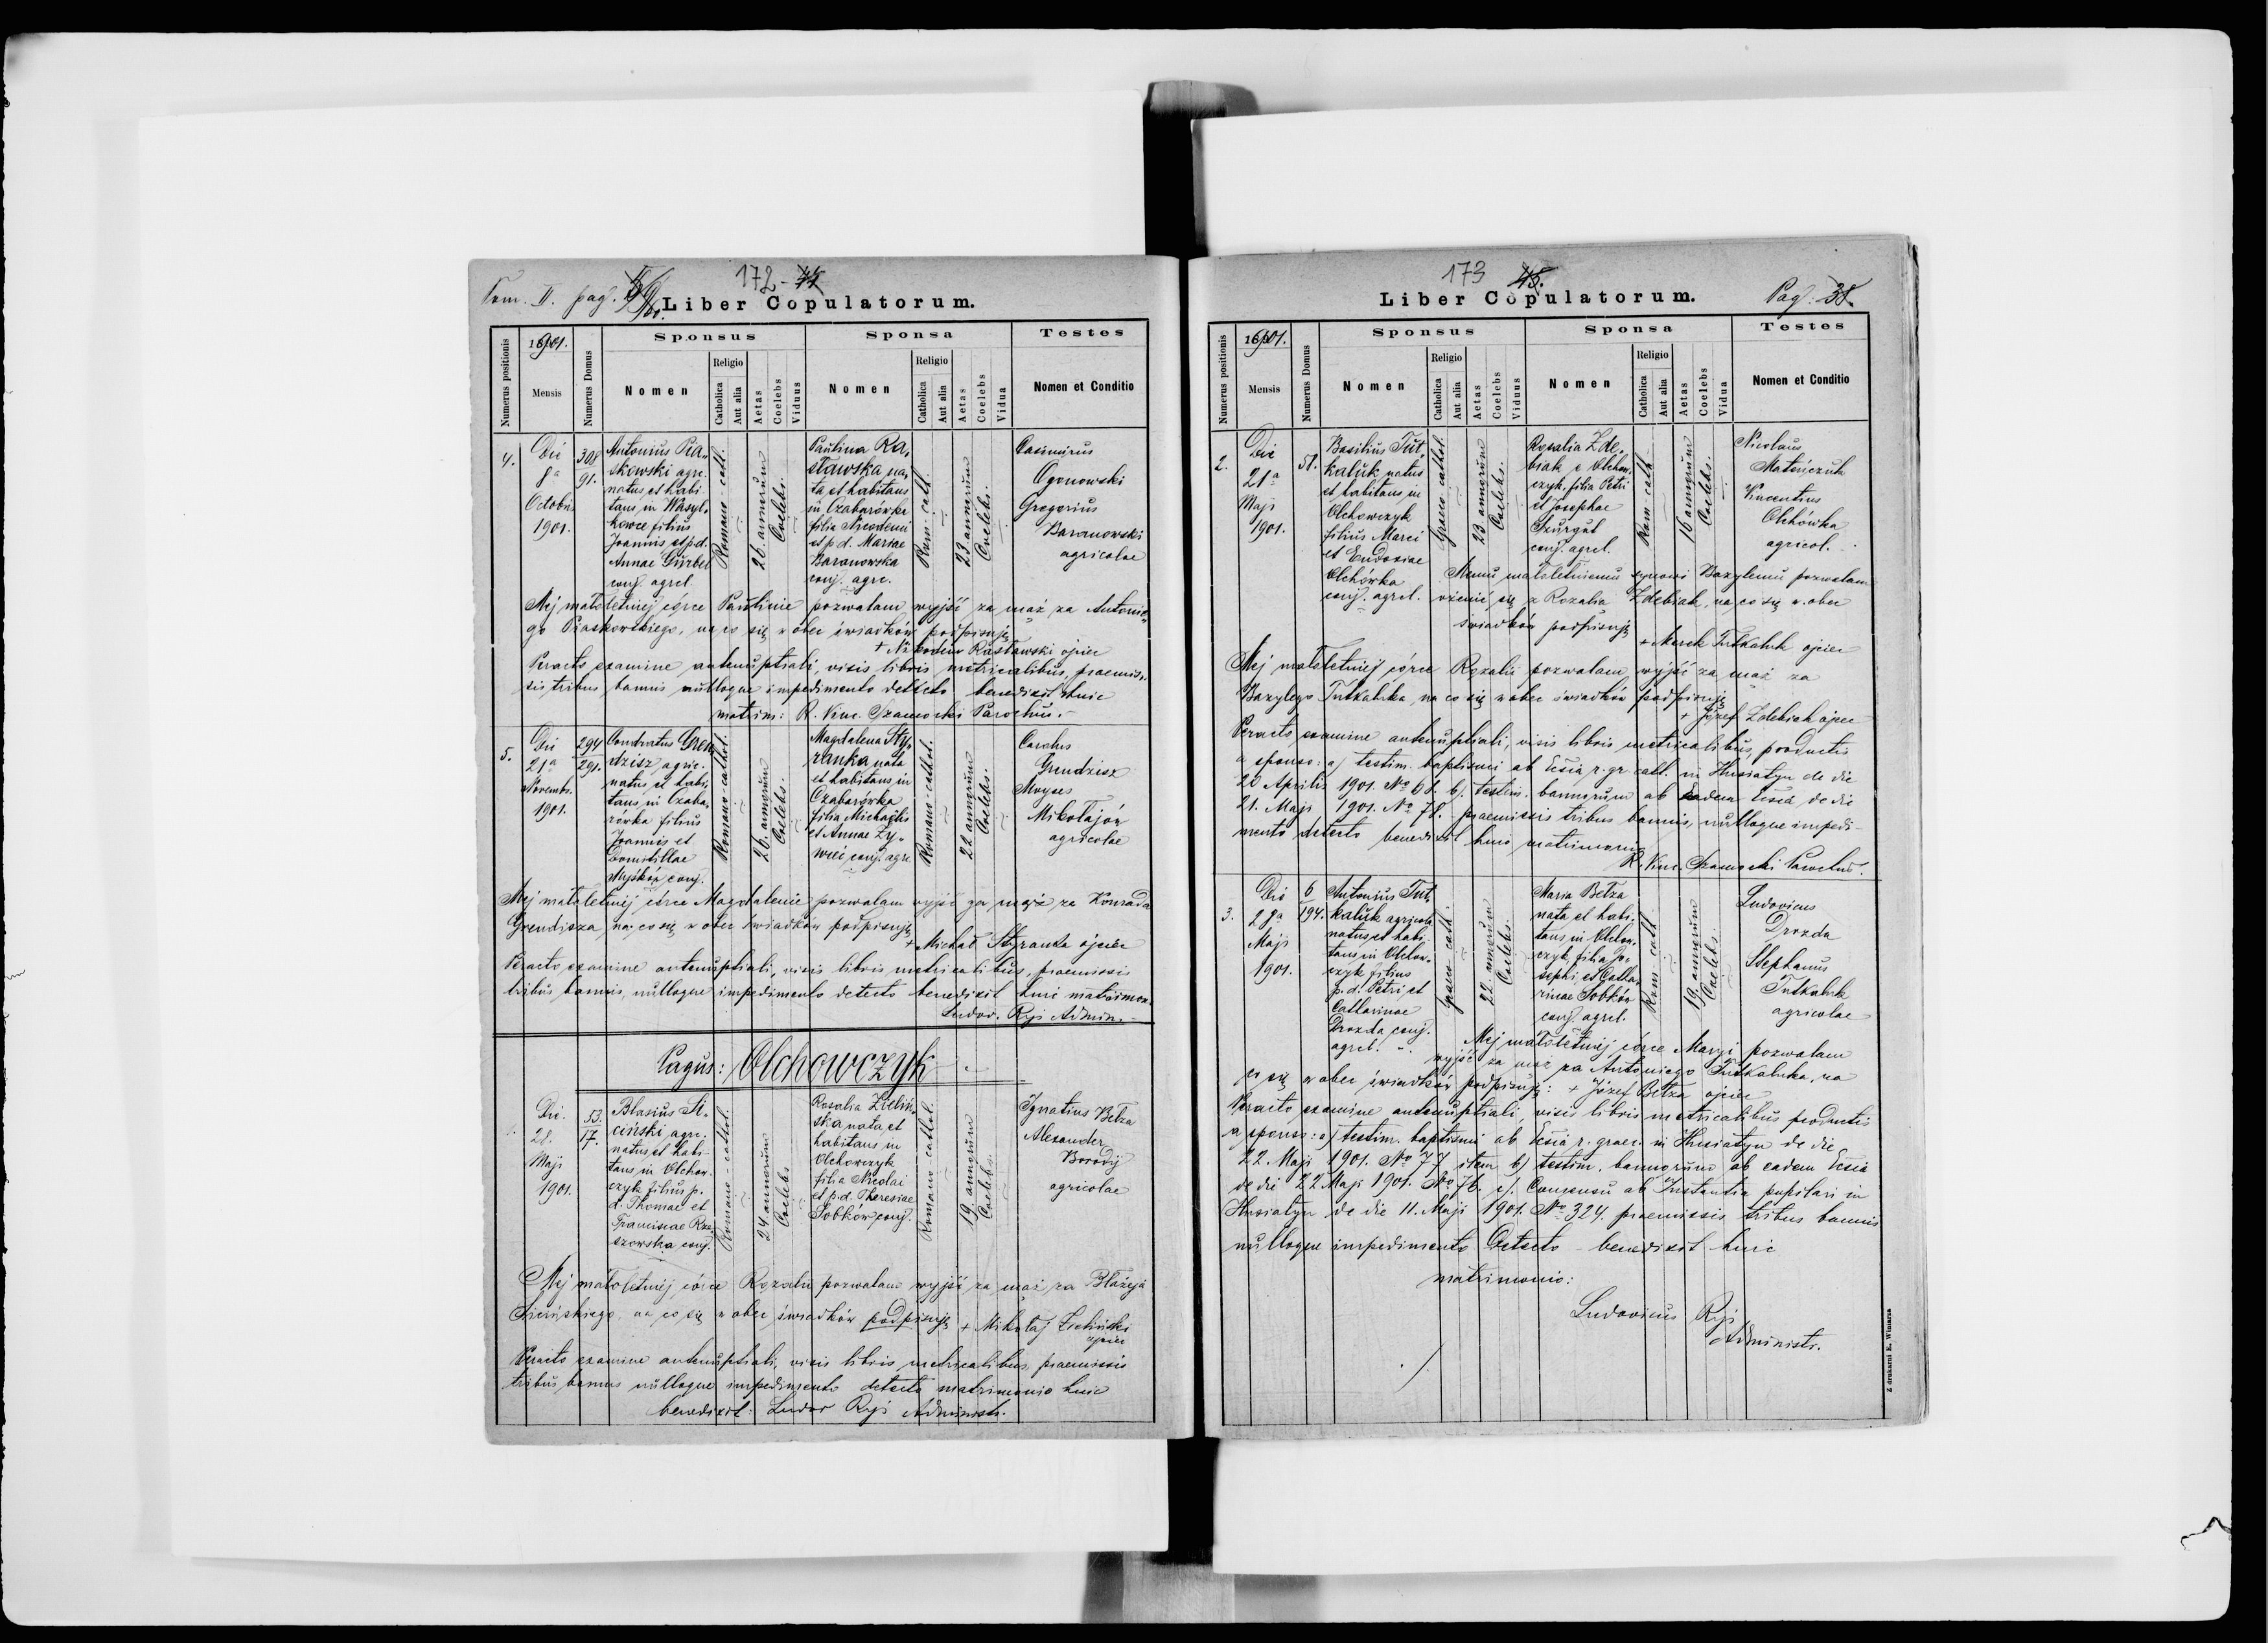 Tom. II. pag.
172 - 44
Liber Copulatorum.
Numerus positionis
1901.
Mensis
Numerus Domus
Sponsus
Nomen
Religio
Catholica
Aut alia
Aetas
Coelebs
Viduus
Sponsa
Nomen
Religio
Catholica
Aut alia
Aetas
Coelebs
Vidua
Testes
Nomen et Conditio
4.
Die
8a
Octobris
1901.
308
91.
Antonius Pia„
skowski agric.
natus et habi
tans in Wasyl„
kowce filius
Joannis et p.d.
Annae Gürbel
conj. agrel.
Romano-cath.
26. annorum
Coelebs.
Paulina Ra„
stawska na„
ta et habitans
in Czabarówka
filia Nicodemi
et p.d. Mariae
Baranowska
conj. agric.
Rom-cath.
23. annorum
Coelebs.
Casimirus
Ogonowski
Gregorius
Baranowski
agricolae
Mej małoletniej córce Paulinie pozwalam wyjść za mąż za Antonie„
go Piaskowskiego, na co się wobec świadków podpisuję
+ Nikodem Rastawski ojciec
Peracto examine antenuptiali, visis libris metricalibus, praemis„
sis tribus bannis nulloque impedimento detecto benedixit huic
matrim: R. Vinc. Szamocki Parochus.
5.
Die
21a
Novembr.
1901.
294
291.
Condratus Gren„
dzisz agric.
natus et habi„
tans in Czaba„
rówka filius
Joannis et
Domitillae
Myśków conj.
Romano-cathol.
26. annorum
Coelebs.
Magdalena Sty„
ranka nata
et habitans in
Czabarówka
filia Michaelis
et Annae Ży„
wiec conj. agre
Romano-cathol.
22 annorum
Coelebs.
Carolus
Grendzisz
Moyses
Mikołajów
agricolae
Mej małoletniej córce Magdalenie pozwalam wyjść za mąż za Konrada
Grendisza, na co się wobec świadków podpisuję
+ Michał Styranka ojciec
Peracto examine antenuptiali, visis libris metricalibus, praemissis
tribus bannis, nulloque impedimento detecto benedixit huic matrimon.
Ludov. Ryś Admin.
Pagus: Olchowczyk
1.
Die.
28.
Maji
1901.
53.
17.
Blasius Si„
ciński agric.
natus et habi-
tans in Olchow„
czyk filius p.
d. Thomae et
Franciscae Rze„
szowska conj.
Romano-cathol.
24 annorum
Coelebs
Rosalia Zieliń„
ska nata et
habitans in
Olchowczyk
filia Nicolai
et p.d. Theresiae
Sobków conj.
Romano-cathol.
19. annorum
Coelebs.
Ignatius Bełza
Alexander
Borodij
agricolae
Mej małoletniej córce Rozalii pozwalam wyjść za mąż za Błażeja
Sicińskiego, na co się wobec świadków podpisuję + Mikołaj Zieliński
ojciec
Peracto examine antenuptiali, visis libris metricalibus, praemissis
tribus bannis nulloque impedimento detecto matrimonio huic
benedixit: Ludov Ryś Administr.
173 45.
Liber Copulatorum.
Pag. 38.
Numerus positionis
1901.
Mensis
Numerus Domus
Sponsus
Nomen
Religio
Catholica
Aut alia
Aetas
Coelebs
Viduus
Sponsa
Nomen
Religio
Catholica
Aut alia
Aetas
Coelebs
Vidua
Testes
Nomen et Conditio
2.
Die
21a
Maji
1901.
51.
Basilius Tut„
kaluk natus
et habitans in
Olchowczyk
filius Marci
et Eudoxiae
Olchówka
conj. agrel.
Graeco-cathol.
23 annorum
Coelebs.
Rosalia Zde„
biak e Olchow„
czyk, filia Petri
et Josephae
Szurgut
conj. agrel.
Rom-cath
16 annorum
Coelebs.
Nicolaus
Mateńczuk
Vincentius
Olchówka
agricol.
Memu małoletniemu synowi Bazylemu pozwalam
ożenić się z Rozalią Zdebiak, na co się wobec
świadków podpisuję
+ Marek Tutkaluk ojciec
Mej małoletniej córce Rozalii pozwalam wyjść za mąż za
Bazylego Tutkaluka, na co się wobec świadków podpisuję
+ Józef Zdebiak ojciec
Peracto examine antenuptiali, visis libris metricalibus, productis
a sponso: a) testim. baptismi ab Ecsia r. gr. cath. in Husiatyn de die
20 Aprilis 1901. No 68. b). testim. bannorum ab eadem Ecsia de die
21. Maji 1901. No 78. praemissis tribus bannis, nulloque impedi-
mento detecto benedixit huic matrimonio
R. Vinc. Szamocki Parochus.
3.
Die
28a
Maji
1901.
6
194.
Antonius Tut„
kaluk agricola
natus et habi„
tans in Olchow„
czyk filius
p. d. Petri et
Catharinae
Drozda conj.
agrel.
Graeco-cath.
22. annorum
Coelebs.
Maria Bełza
nata et habi„
tans in Olchow„
czyk filia Jo„
sephi et Catha„
rinae Sobków
conj. agrel.
Rom-cath.
19. annorum
Coelebs.
Ludovicus
Drozda
Stephanus
Tutkaluk
agricolae
Mej małoletniej córce Maryi pozwalam
wyjść za mąż za Antoniego Tutkaluka, na
co się wobec świadków podpisuję: + Józef Bełza ojciec
Peracto examine antenuptiali visis libris metricalibus productis
a sponso: a) testim. baptismi ab Ecsia r. graec. in Husiatyn de die
22. Maji 1901. No 77 item b) testim. bannorum ab eadem Ecsia
de die 22 Maji 1901. No 76. c). Consensu ab Instantia pupilari in
Husiatyn de die 11. Maji 1901. No 324. praemissis tribus bannis
nulloque impedimento detecto - benedixit huic
matrimonio:
Ludovicus Ryś
Administr.
Z drukarni E. Winiarza